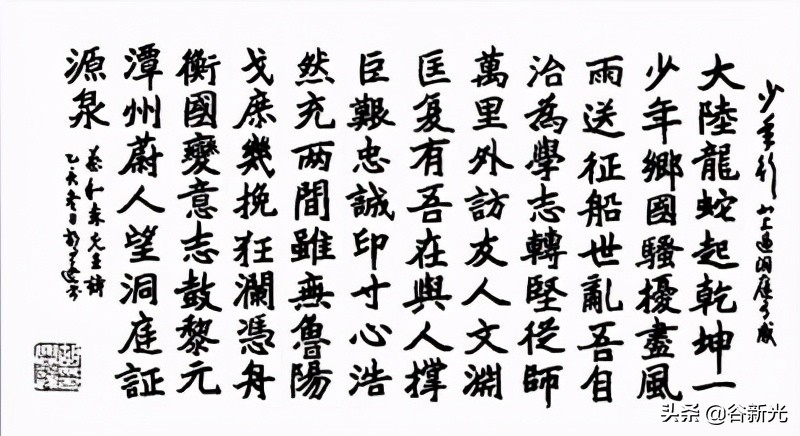 少年行 北上過洞庭有感
大陸龍蛇起乾坤一
少年鄉國騷擾盡風
雨送征船世亂吾自
治為學志轉堅從師
萬里外訪友人文淵
匡复有吾在與人撐
巨艱忠誠印寸心浩
然充两間雖無魯陽
戈庶幾挽狂瀾憑舟
衡國變意志鼓黎元
潭州蔚人望洞庭証
源泉
蔡和森先生詩
乙亥冬日
头条 @谷新光